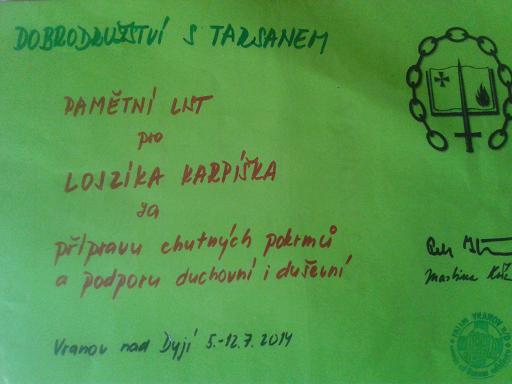 DOBRODRUŽSTVÍ S TARSANEM
PAMĚTNÍ LIST
pro
LOJZÍKA KARPÍŠKA
za
přípravu chutných pokrmů
a podporu duchovní i duševní
Martina
Vranov nad Dyjí 5.-12.7.2014
VRANOV